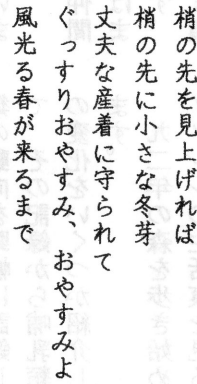 梢の先を見上げれば
梢の先に小さな冬芽
丈夫な産着に守られて
ぐっすりおやすみ、おやすみよ
風光る春が来るまで